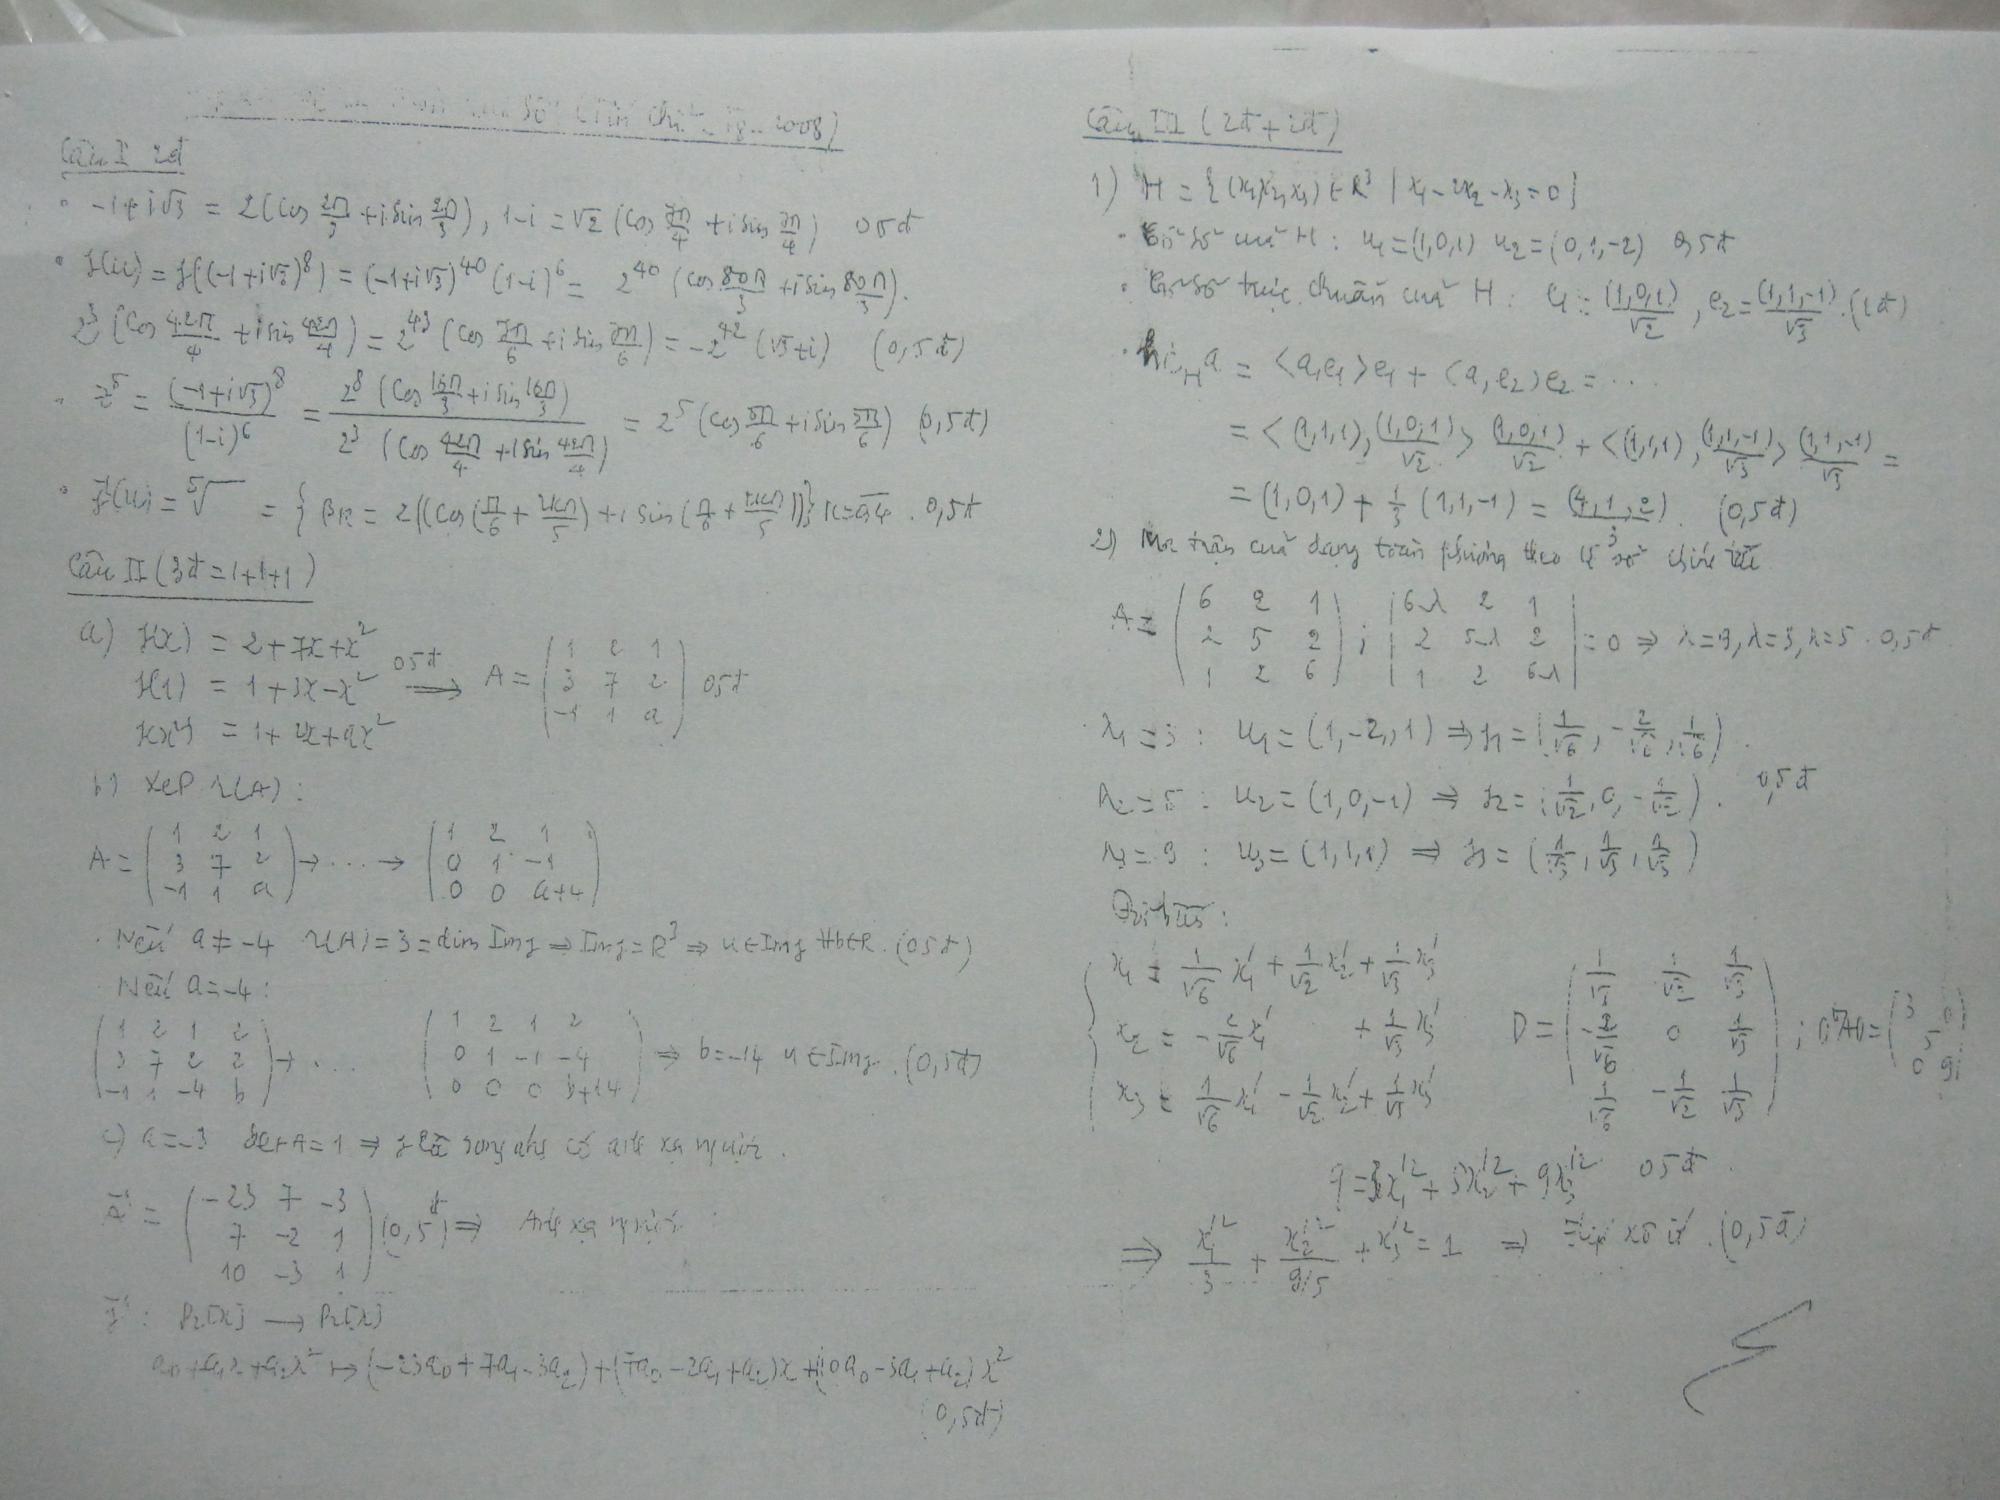 số (Tín chỉ - 2008)
Câu I 2đ
• -1+i√3 = 2(cos 2π/3 + i sin 2π/3), 1-i = √2 (cos 7π/4 + i sin 7π/4) 0 5đ
• f(u) = f((-1+i√3)^8) = (-1+i√3)^40 (1-i)^6 = 2^40 (cos 80π/3 + i sin 80π/3).
2^3 (cos 42π/4 + i sin 42π/4) = 2^43 (cos 7π/6 + i sin 7π/6) = -2^42 (√3+i) (0,5đ)
• z^5 = (-1+i√3)^8/(1-i)^6 = 2^8 (cos 16π/3 + i sin 16π/3)/2^3 (cos 42π/4 + i sin 42π/4) = 2^5 (cos 5π/6 + i sin 5π/6) (0,5đ)
• f^-1(u) = ⁵√ = { βk = 2((cos(π/6 + 2kπ/5) + i sin(π/6 + 2kπ/5))} k=0,4 . 0,5đ
Câu II (3đ = 1+1+1)
a) f(x) = 2 + 7x + x²
f(1) = 1 + 3x - x² 0 5đ ⟹ A = (1 2 1; 3 7 2; -1 1 a) 0,5đ
f(x²) = 1 + 2x + ax²
b) Xét r(A) :
A = (1 2 1; 3 7 2; -1 1 a) → ... → (1 2 1; 0 1 -1; 0 0 a+4)
. Nếu a ≠ -4 r(A) = 3 = dim Imf ⇒ Imf = R³ ⇒ u ∈ Imf ∀b∈R. (0 5đ)
Nếu a = -4 :
(1 2 1 2; 3 7 2 2; -1 1 -4 b) → ... (1 2 1 2; 0 1 -1 -4; 0 0 0 b+14) ⇒ b = -14 u ∈ Imf. (0,5đ)
c) a = -3 det A = 1 ⇒ f là song ánh có ánh xạ ngược.
A^-1 = (-23 7 -3; 7 -2 1; 10 -3 1) (0,5đ) ⇒ Ánh xạ ngược :
f^-1 : P₂[x] → P₂[x]
a₀ + a₁x + a₂x² ↦ (-23a₀ + 7a₁ - 3a₂) + (7a₀ - 2a₁ + a₂)x + (10a₀ - 3a₁ + a₂)x²
(0,5đ)
Câu III (2đ + 2đ)
1) H = {(x₁,x₂,x₃) ∈ R³ | x₁ - 2x₂ - x₃ = 0}
• Cơ sở của H : u₁ = (1,0,1) u₂ = (0,1,-2) 0,5đ
• Cơ sở trực chuẩn của H : e₁ = (1,0,1)/√2 , e₂ = (1,1,-1)/√3 . (1đ)
• hc_H a = <a,e₁>e₁ + <a,e₂>e₂ = ...
= <(1,1,1), (1,0,1)/√2> (1,0,1)/√2 + <(1,1,1), (1,1,-1)/√3> (1,1,-1)/√3 =
= (1,0,1) + 1/3 (1,1,-1) = (4,1,2)/3 . (0,5đ)
2) Ma trận của dạng toàn phương theo cơ sở chính tắc
A = (6 2 1; 2 5 2; 1 2 6) ; |6-λ 2 1; 2 5-λ 2; 1 2 6-λ| = 0 ⇒ λ = 9, λ = 3, λ = 5 . 0,5đ
λ₁ = 3 : u₁ = (1,-2,1) ⇒ f₁ = (1/√6, -2/√6, 1/√6) .
λ₂ = 5 : u₂ = (1,0,-1) ⇒ f₂ = (1/√2, 0, -1/√2) . 0,5đ
λ₃ = 9 : u₃ = (1,1,1) ⇒ f₃ = (1/√3, 1/√3, 1/√3)
Đổi biến :
x₁ = 1/√6 x₁' + 1/√2 x₂' + 1/√3 x₃'
x₂ = -2/√6 x₁' + 1/√3 x₃' D = (1/√6 1/√2 1/√3; -2/√6 0 1/√3; 1/√6 -1/√2 1/√3) ; DᵗAD = (3 0; 5; 0 9)
x₃ = 1/√6 x₁' - 1/√2 x₂' + 1/√3 x₃'
q = 3x₁'² + 5x₂'² + 9x₃'² 0 5đ .
⟹ x₁'²/3 + x₂'²/9/5 + x₃'² = 1 ⇒ Elipxôit . (0,5đ)